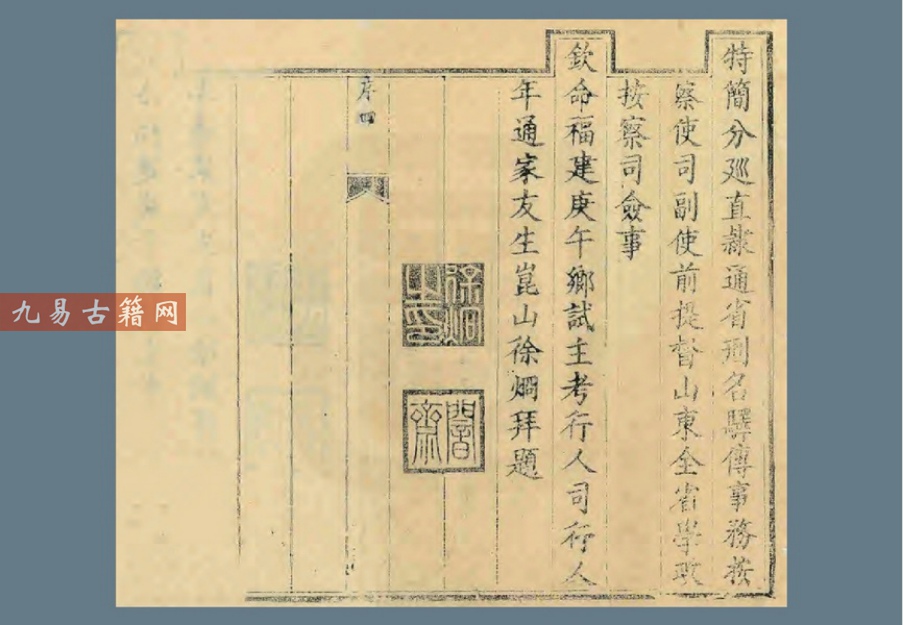 特簡分廵直隸通省刑名驛傳事務按
察使司副使前提督山東全省學政
按察司僉事
欽命福建庚午鄉試主考行人司行人
年通家友生崑山徐炯拜題
徐炯之印
誾齋
序 四
九易古籍网